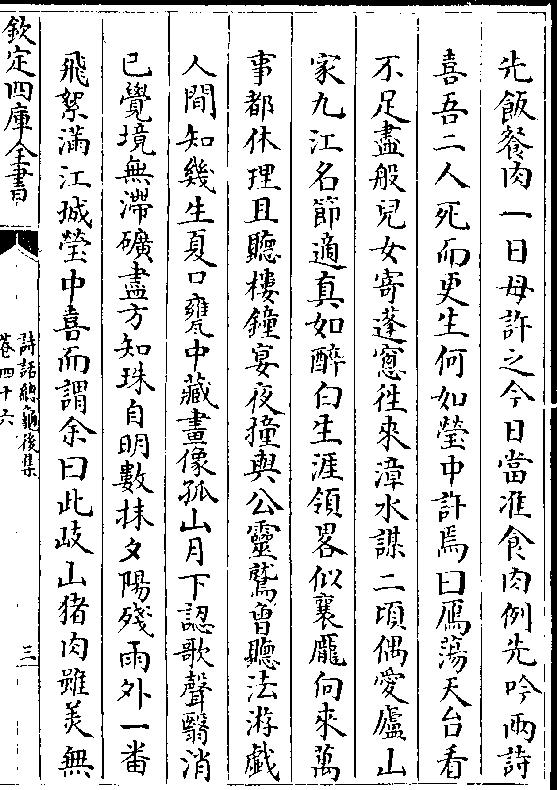 先飯餐肉一日毋許之今日當准食肉例先吟兩詩
喜吾二人死而更生何如瑩中許焉曰鴈蕩天台看
不足盡般兒女寄蓬窻徃來漳水謀二頃偶愛廬山
家九江名節適真如醉白生涯領畧似襄龎向來萬
事都休理且聽樓鐘宴夜撞與公靈鷲曾聽法游戯
人間知幾生夏口甕中藏畫像孤山月下認歌聲翳消
已覺境無滯礦盡方知珠自明數抹夕陽殘雨外一番
飛絮滿江城瑩中喜而謂余曰此岐山猪肉雖美無
欽定四庫全書
詩話總龜後集
卷四十六
三